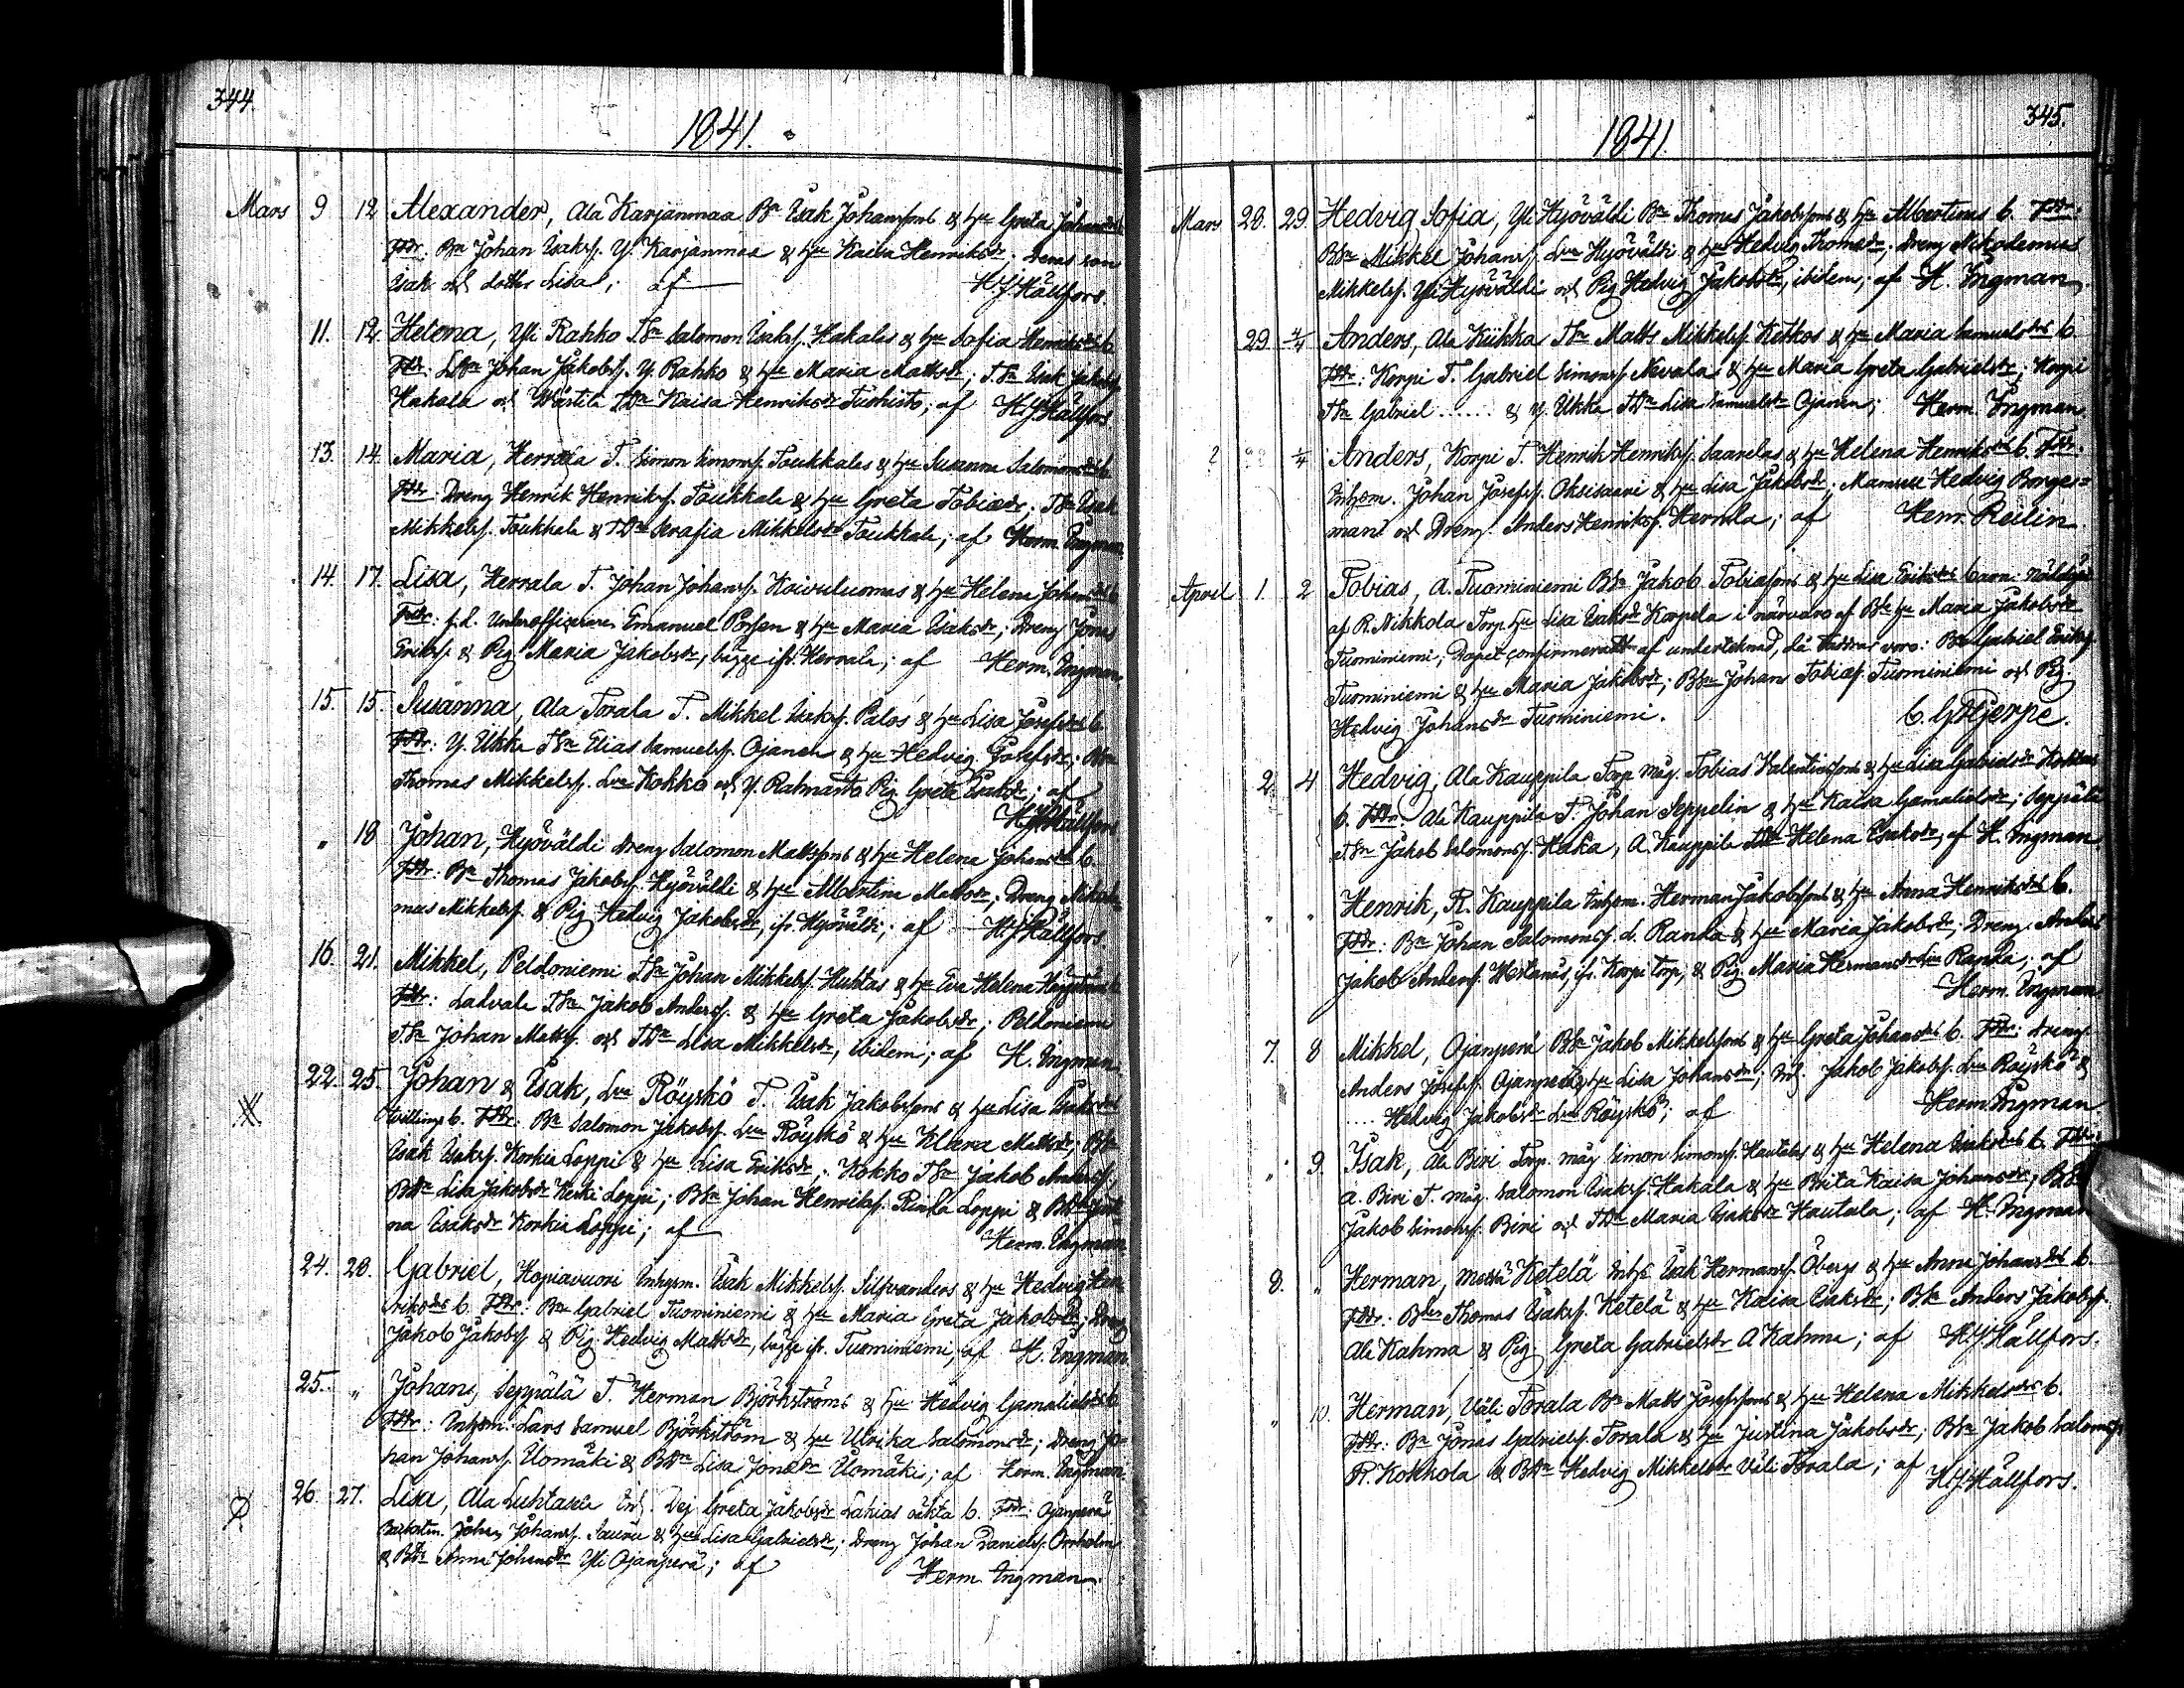 344.
1841.
Mars 9 12 Alexander, Ala Karjanmaa Bn Isak Johanssons & hu Greta Johansdrs
Fddr: Bn Johan Isakss. Y. Karjanmaa & hu Kaisa Henriksdr; Deras son
Isak och dotter Lisa; af H J Hällfors.
11. 12. Helena, Yli Rahko TSn Salomon Isakss. Hakalas & hu Sofia Henriksdrs b.
Fddr: Johan Jakobss. Y. Rahko & hu Maria Mattsdr; TSn Isak Jakobss.
Hakala och Wästilä TDr Kaisa Henriksdr Tuohisto; af H J Hällfors
13. 14. Maria, Herrala T. Simon Simonss. Toukkalas & hu Susanna Salomonsdrs b.
Fddr: Dreng Henrik Henrikss. Toukkala & hu Greta Tobiædr; TSn Isak
Mikkelss. Toukkala & TDr Serafia Mikkelsdr Toukkala; af Herm. Ingman.
14. 17. Lisa, Herrala T. Johan Johanss. Koivuluomas & hu Helena Johansdrs b.
Fddr: f.d. Underofficeraren Emanuel & hu Maria Isaksdr; Dreng Jonas
Erikss. & Pig. Maria Jakobsdr, bägge ifr. Herrala; af Herm. Ingman.
15. 15. Susanna, Ala Torala T. Mikkel Isakss. Palos & hu Lisa Josefsdrs b.
Fddr: Y. Ukka TSn Elias Samuelss. Ojanen & hu Hedvig Josefsdr;
Thomas Mikkelss. Lva Kokko och Y. Pig. Greta Isaksdr; af
H J Hällfors
" 18 Johan, Hyöväldi dreng Salomon Mattssons & hu Helena Johansdrs b.
Fddr: Bn Thomas Jakobss. Hyöväldi & hu Albertina Mattsdr; Dreng Nikode-
mus Mikkelss. & Pig. Hedvig Jakobsdr, ifr. Hyöväldi; af H J Hällfors
16. 21. Mikkel, Peldoniemi TSn Johan Mikkelss. Huhtas & hu Eva Helena
Fddr: Ladvala TSn Jakob Anderss. & hu Greta Jakobsdr; Peldoniemi
TSn Johan Mattss. och TDr Lisa Mikkelsdr, ibidem; af H. Ingman.
22. 25. Johan & Isak, Lva Röyskö T. Isak Jakobssons & hu Lisa Isaksdrs
Tvillings b. Fddr: Bn Salomon Jakobss. Lva Röyskö & hu Klara Mattsdr; BSn
Isak Isakss. Korkia Loppi & hu Lisa Eriksdr; Kokko TSn Jakob Anderss.
BDr Lisa Jakobsdr Keski Loppi; BSn Johan Henrikss. Rinda Loppi & BDr Justi-
na Isaksdr Korkia Loppi; af Herm. Ingman.
24. 28. Gabriel, Hopiavuori Inhysm. Isak Mikkelss. Silfvanders & hu Hedvig Hen-
riksdrs b. Fddr: Bn Gabriel Tuominiemi & hu Maria Greta Jakobsdr; Dreng
Jakob Jakobss. & Pig. Hedvig Mattsdr, bägge ifr. Tuominiemi, af H. Ingman.
25. " Johans, Seppälä T. Herman Björkströms & hu Hedvig Gamalielsdrs b.
Fddr: Inhysm. Lars Samuel Björkström & hu Ulrika Salomonsdr; Dreng Jo-
han Johanss. Uomäki & BDr Lisa Jonædr Uomäki; af Herm. Ingman.
26. 27. Lisa, Ala Luhtasela Inh. Dej Greta Jakobsdr Lahias oäkta b. Fddr: Ojanperä
Johan Johanss. Sauru & hu Lisa Gabrielsdr; Dreng Johan Danielss. Orrholm
& BDr Anna Johansdr Yli Ojanperä; af Herm. Ingman.
345.
1841.
Mars 28. 29. Hedvig Sofia, Yli Hyöväldi Bn Thomas Jakobssons & hu Albertinas b. Fddr:
BSn Mikkel Johanss. Lva Hyöväldi & hu Hedvig Thomædr; Dreng Nikodemus
Mikkelss. Yli Hyöväldi och Pig Hedvig Jakobsdr, ibidem; af H. Ingman.
29 4/4 Anders, Ala Kiikka TSn Matts Mikkelss. Ketkos & hu Maria Samuelsdrs b.
Fddr: Korpi T. Gabriel Simonss. Nevala & hu Maria Greta Gabrielsdr; Korpi
TSn Gabriel ...... & Y. Ukka TDr Lisa Samuelsdr Ojanen; Herm. Ingman.
? 4/4 Anders, Korpi T. Henrik Henrikss. Saarelas & hu Helena Henriksdrs b. Fddr:
Inhysm. Johan Josefss. Oksisaari & hu Lisa Jakobsdr; Mamsell Hedvig Borges=
man och Dreng. Anders Henrikss. Herrala; af Henr. Reilin
April 1. 2 Tobias, A. Tuominiemi BSn Jakob Tobiassons & hu Lisa Eriksdrs barn. Nöddöpt
af R. Nikkola Torp. hu Lisa Isaksdr Korpela i närvaro af BSn hu Maria Jakobsdr
Tuominiemi; Dopet confirmerades af undertecknad, då Faddrar voro: Bn Gabriel Erikss.
Tuominiemi & hu Maria Jakobsdr; BSn Johan Tobiæs. Tuominiemi och Pig.
Hedvig Johansdr Tuominiemi. C. G. Hjerpe.
2. 4 Hedvig, Ala Kauppila Torp. måg. Tobias Valentinssons & hu Lisa Gabrielsdr
b. Fddr: Ala Kauppila T. Johan Seppelin & hu Kaisa Gamalielsdr; Seppälä
TSn Jakob Salomonss. Haka, A. Kauppila TDr Helena Isaksdr, af H. Ingman
" " Henrik, R. Kauppila Inhysm. Herman Jakobssons & hu Anna Henriksdrs b.
Fddr: Bn Johan Salomonss. L. Ranka & hu Maria Jakobsdr; Dreng. Anders
Jakob Anderss. , ifr. Korpi Torp; & Pig Maria Hermansdr Lva Ranka; af
Herm. Ingman.
7. 8 Mikkel, Ojanperä BSn Jakob Mikkelssons & hu Greta Johansdrs b. Fddr: Dreng
Anders Josefss. Ojanperä & hu Lisa Johansdr; Jakob Jakobss. Lva Röyskö &
.... Hedvig Jakobsdr Lva Röyskö; af Herm. Ingman.
" 9. Isak, Ala Biri Torp. måg Simon Simonss. Hautalas & hu Helena Isaksdrs b. Fddr:
A. Biri T. måg. Salomon Isakss. Hakala & hu Brita Kaisa Johansdr; BSn
Jakob Simonss. Biri och TDr Maria Isaksdr Hautala; af H. Ingman
8. " Herman, Metsä Ketelä Inhs. Isak Hermanss. Öbergs & hu Anna Johansdrs b.
Fddr: Thomas Isakss. Ketelä & hu Kaisa Isaksdr; BSn Anders Jakobss.
Ala Kahma & Pig. Greta Gabrielsdr A Kahma; af H J Hällfors.
" 10. Herman, Väli Torala Bn Matts Josefssons & hu Helena Mikkelsdrs b.
Fddr: Bn Jonas Gabrielss. Torala & hu Justina Jakobsdr; BSn Jakob Salomonss.
R. Kokkola & BDr Hedvig Mikkelsdr Väli Torala; af H. J. Hällfors.